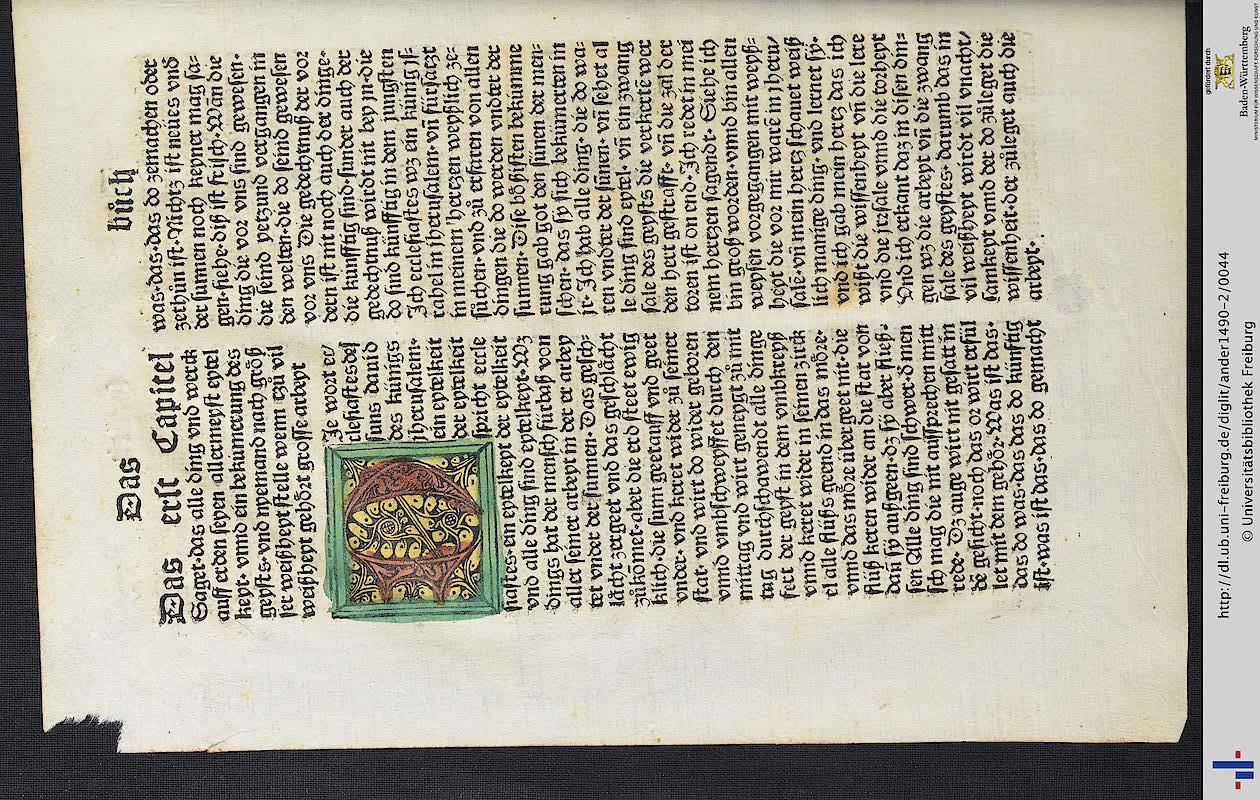 Das
büch
Das erst Capitel
Saget·das alle ding vnd werck
auff erden seyen allermeyst eytel
keyt· vnnd ein bekumerung des
geysts·vnd nyemand nach größ
ser weißheyt stelle wenn zů vil
weißheyt gehört grosse arbeyt
Die wort ec/
clesiastes des
suns dauid
des künigs
iherusalem·
ein eytelkeit
der eytelkeit
spricht eccle
siastes·ein eytelkeyt der eytelkeit
vnd alle ding sind eytelkeyt·Wz
dings hat der mensch fürbaß von
aller seiner arbeyt in der er arbey
tet vnder der sunnen· Das gesch-
lächt zergeet vnd das geschlächt
zůkomet·aber die erd steet ewig
klich·die sunn geetauff vnd geet
vnder· vnd keret wider zů seiner
stat· vnd wirt do wider geboren
vnnd vmbschweyffet durch den
mittag vnd wirt geneygt zů mit
tag durchschawendt alle dinge
fert der geyst in dem vmbkreyß
vnnd keret wider in seinen zirck
el alle flüß geend in das möre·
vnnd das möre übergeet nit·die
flüß keren wider an die stat von
dañ sy außgeen·dz sy aber fließ·
sen Alle ding sind schwer·d men
sch mag die nit außsprechen mitt
rede· Dz auge wirt nit gesatt in
d gesicht·noch das or wirt erfül
let mit dem gehör· Was ist das·
das do was·das das do künftig
ist·was ist das·das do gemacht
was·das·das do zemachen oder
zethůn ist·Nichtz ist neües vnd
der sunnen noch keyner mag sa-
gen·siehe·diß ist frisch·Wañ die
ding die vor vns sind gewesen·
die send yetzund vergangen in
den welten·die do send gewesen
vor vns Die gedächtnuß der vor
dern ist nit noch auch der dinge·
die künfftig sind·sunder auch der
gedechtnuß wirdt nit bey in·die
do sind künfftig in dem jungsten
Ich ecclesiastes wz ein künig is-
rahel in iherusalem·vñ fürsatzt
in meinem hertzen weyßlich ze-
sůchen·vnd zů erfaren von allen
dingen die do werden vnder der
sunnen·Dise bösisten bekumme
rung gab got den sünen der men-
schen·das sy sich bekümerten in
ir·Ich hab alle ding·die do wa-
ren vnder der sunen·vñ sehet al
le ding sind eytel·vñ ein zwang
sale des geysts die verkerte wer
den hert gestrafft·vñ die zal der
toren ist on end·Ich redet in mei
nem hertzen sagende· Siehe ich
bin groß worden·vnnd bin allen
weysen vorgegangen mit weyß-
heyt die vor mir warē in iheru/
salē·vñ mein hertz schauet weiß
lich manige ding·vnd lernet sy·
vnd ich gab mein hertz das ich
wißt die wissenheyt vñ die lere
vnd die irsale vnnd die torheyt
Vnd ich erkant daz in disen din-
gen wz die arbeyt vñ die zwang
sale des geystes·darumb das in
vil weißheyt wirdt vil vnächt/
samkeyt vnnd der do zůleget die
wissenheit·der zůleget auch die
arbeyt·
gefördert durch
Baden-Württemberg
MINISTERIUM FÜR WISSENSCHAFT, FORSCHUNG UND KUNST
http://dl.ub.uni-freiburg.de/diglit/ander1490-2/0044
© Universitätsbibliothek Freiburg